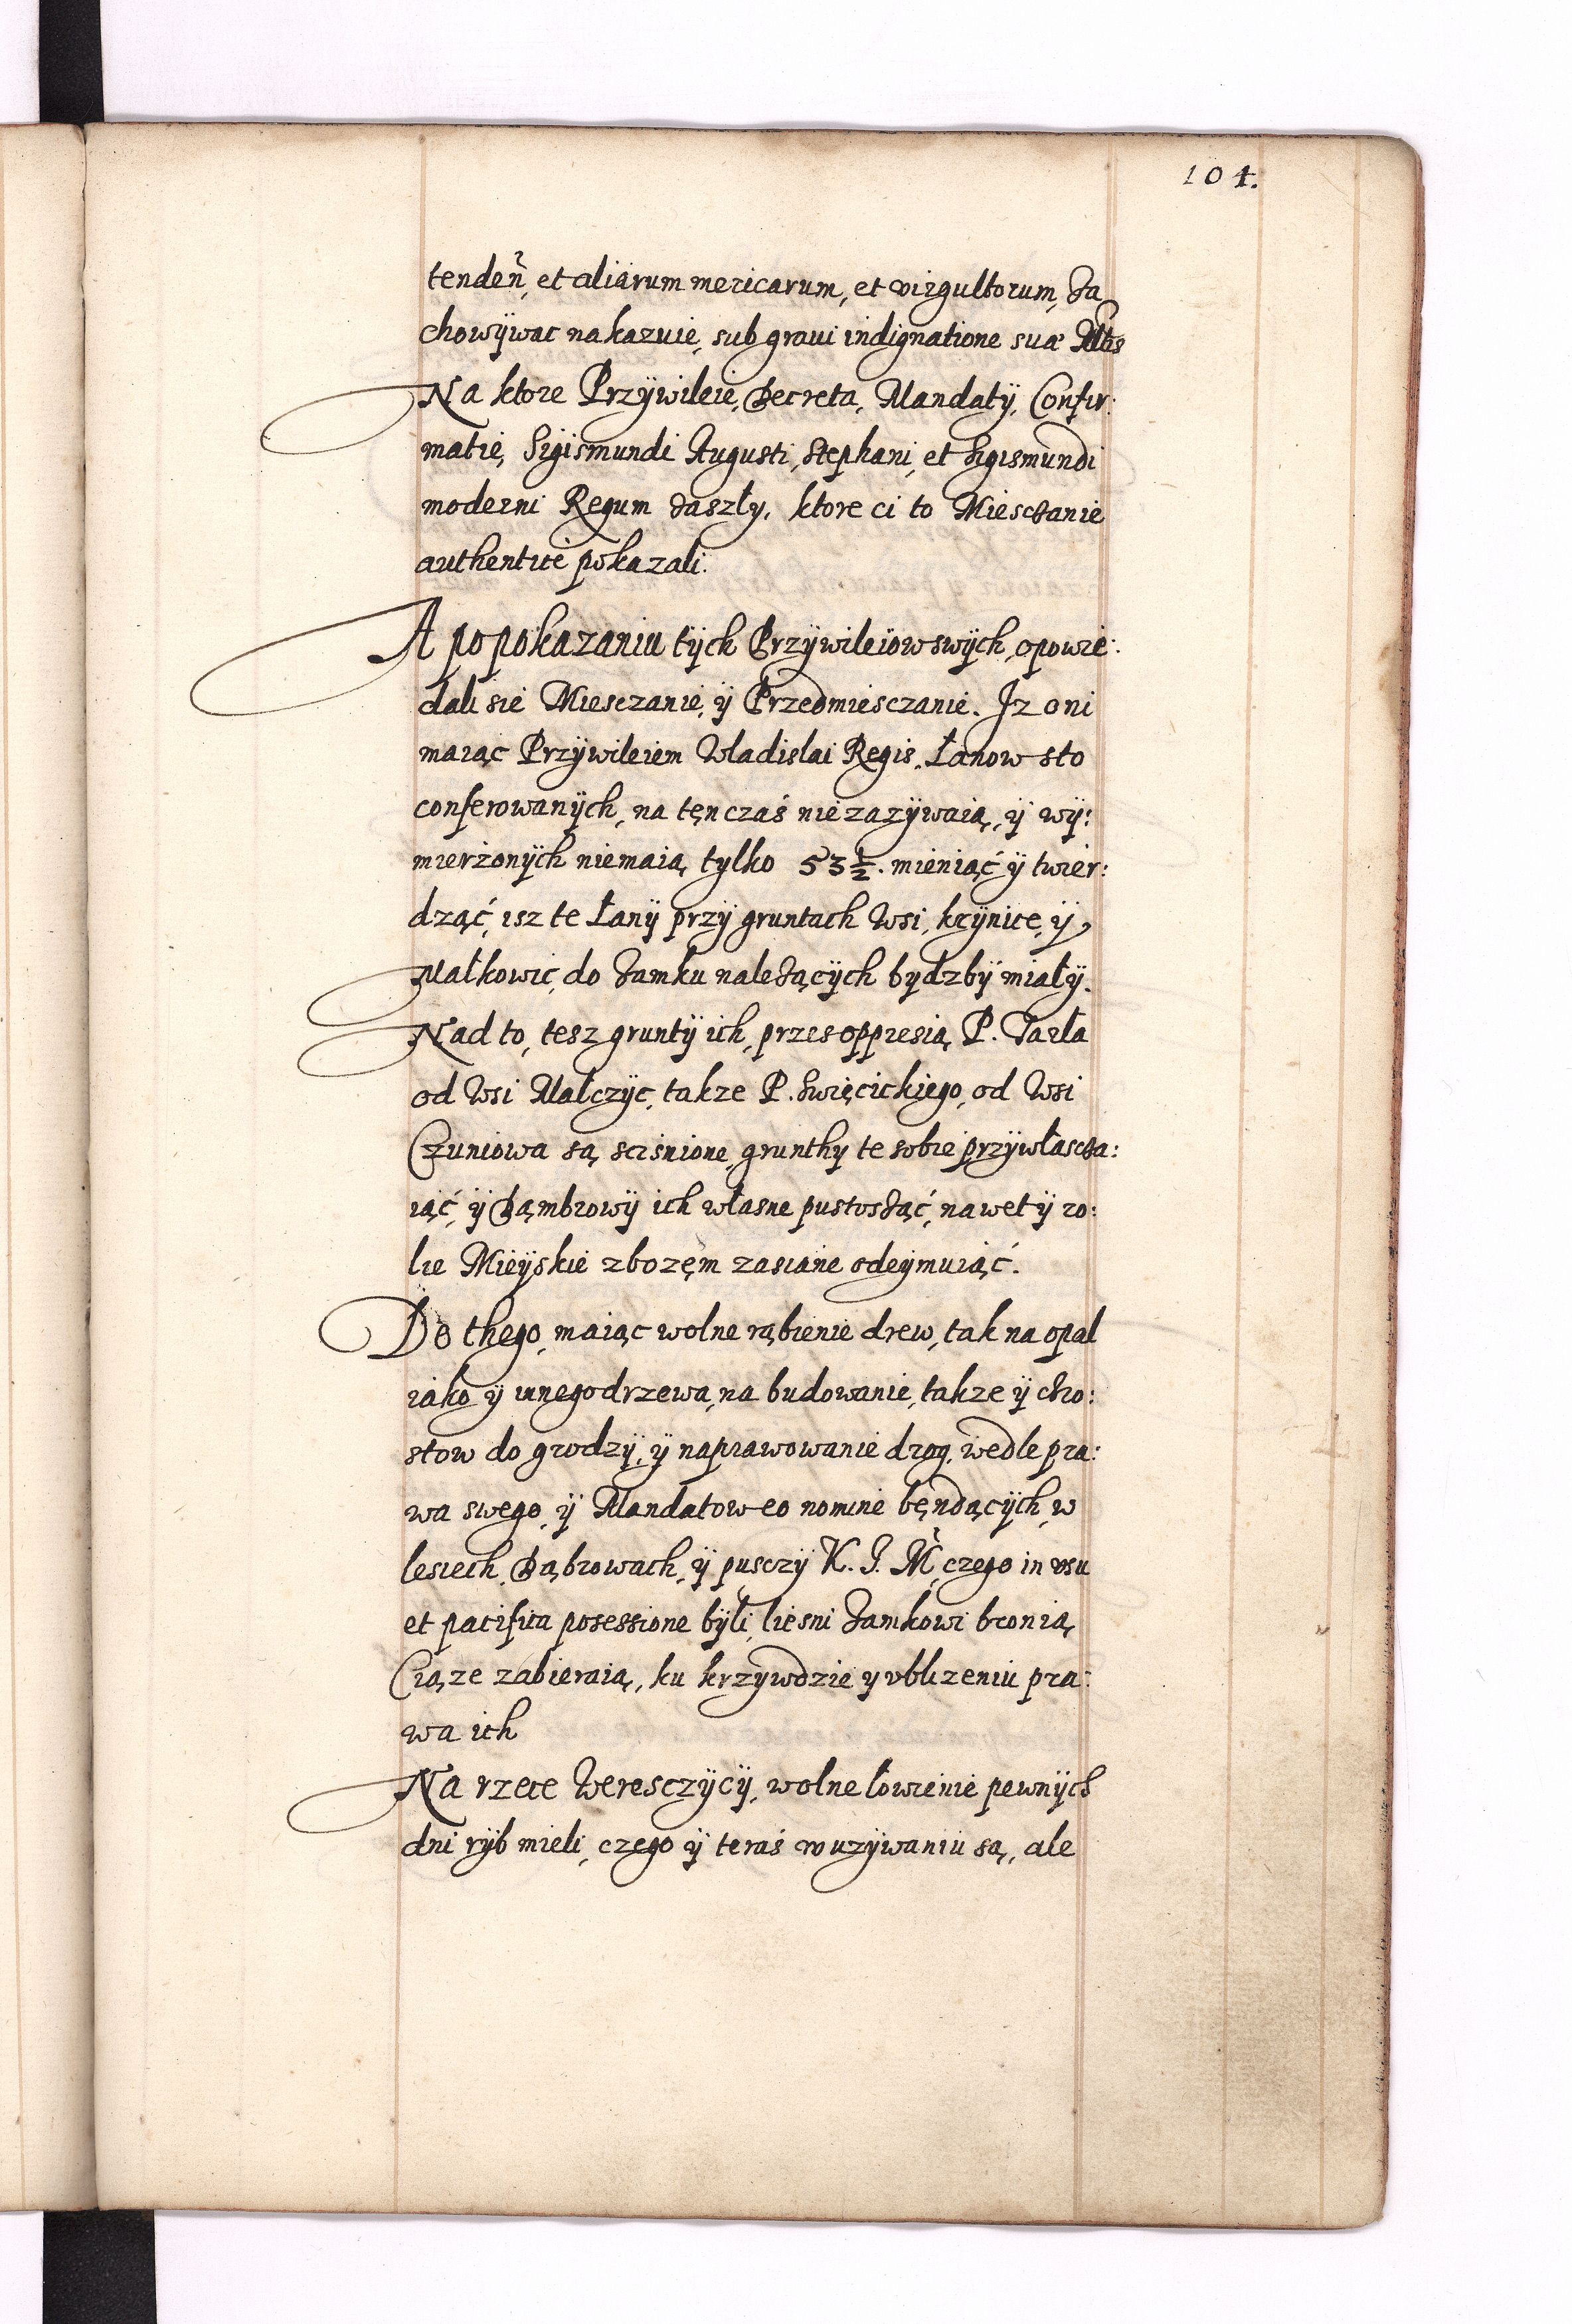 104.
tendeñ, et aliarum mericarum, et virgultorum, za
chowÿwac nakazuie, sub graui indignatione suæ Mtis
Na ktore Przÿwileie, Decreta, Mandatÿ, Confir:
matie, Sigismundi Augusti, Stephani, et Sigismundi
moderni Regum zaszły, ktore ci to Miesczanie
authentice pokazali.
A po pokazaniu tÿch Przÿwileiow swÿch, opowie:
dali sie Miesczanie, ÿ Przedmiesczanie. Jz oni
maiąc Przÿwileiem Wladislai Regis, Łanow sto
conferowanÿch, na tęn czaś nie zazÿwaią, ÿ wÿ:
mierzonÿch niemaią, tylko 53 ½. mieniąć ÿ twier:
dząć, isz te Łanÿ przÿ gruntach Wsi, kcÿnice, ÿ
Małkowic, do Zamku należącÿch bydz bÿ miałÿ.
Nad to, tesz gruntÿ ich, przes oppresią, P. Tarła
od Wsi Malczÿc, takze P. Swięcickiego, od Wsi
Czuniowa są, scisnione, grunthy te sobie przÿwłascza:
iąć, ÿ Dąmbrowÿ ich własne pustosząć, nawet ÿ ro:
lie Mieÿskie zbozęm zasiane odeÿmuiąć.
Do thego, maiąc wolne rąbienie drew, tak na opal
iako ÿ innego drzewa, na budowanie, takze ÿ chro:
stow do grodzÿ, ÿ naprawowanie drog, wedle pra:
wa swego, ÿ Mandatow eo nomine bęndącÿch, w
lesiech, Dąbrowach, ÿ pusczÿ K. J. M̃, czego in vsu
et pacifica posessione bÿli, liesni Zamkowi bronią,
Ciąze zabieraią, ku krzÿwdzie y vblizeniu pra:
wa ich
Na rzece Weresczÿcÿ, wolne łowienie pewnÿch
dni rÿb mieli, czego ÿ teraś w uzÿwaniu są, ale